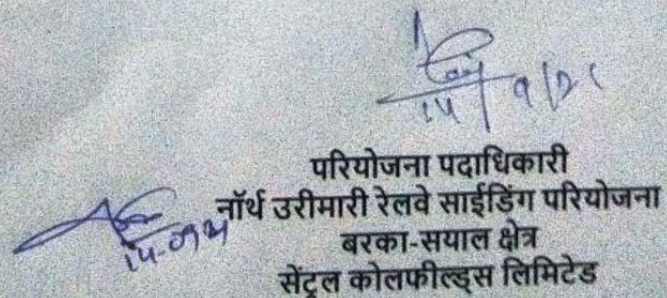 14/9/21
परियोजना पदाधिकारी
नॉर्थ उरीमारी रेलवे साईडिंग परियोजना
14-09-21
बरका-सयाल क्षेत्र
सेंट्रल कोलफील्ड्स लिमिटेड